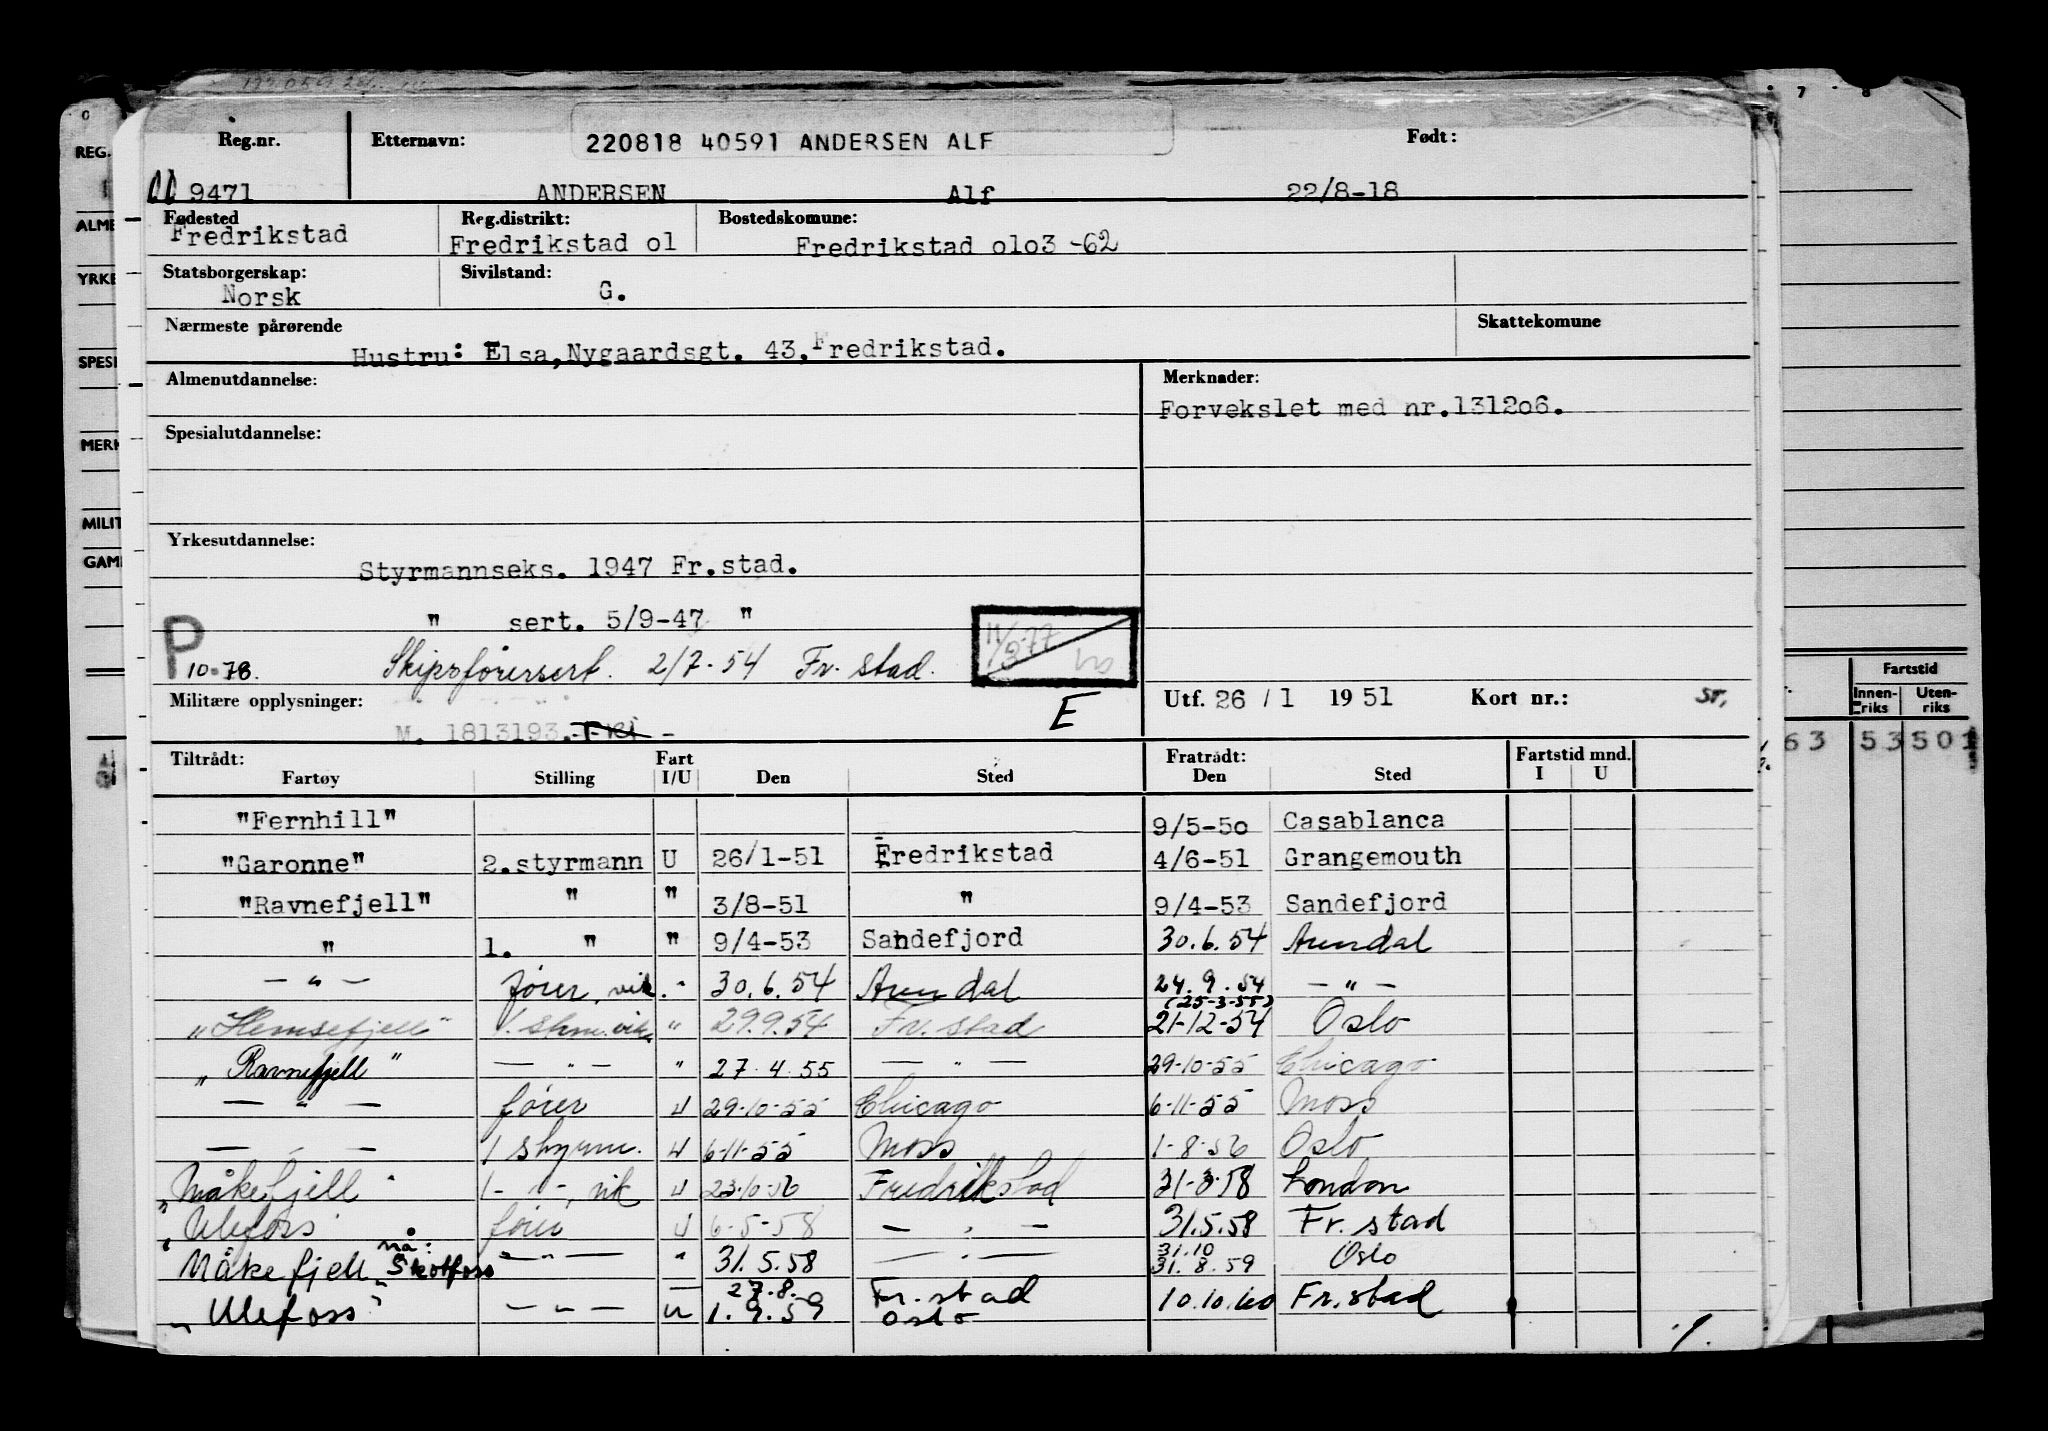 Reg.nr. Etternavn: 220818 40591 ANDERSEN ALF Født:
9471 ANDERSEN Alf 22/8-18
Fødested Reg.distrikt: Bostedskomune:
Fredrikstad Fredrikstad o1 Fredrikstad o1o3 -62
Statsborgerskap: Sivilstand:
Norsk G.
Nærmeste pårørende Skattekomune
Hustru: Elsa, Nygaardsgt. 43, Fredrikstad.
Almenutdannelse: Merknader:
Forvekslet med nr.1312o6.
Spesialutdannelse:
Yrkesutdannelse:
Styrmannseks. 1947 Fr.stad.
" sert. 5/9-47 "
P 10.78. Skipsførersert. 2/7-54 Fr. stad. 11/3-77
Militære opplysninger: E Utf. 26 / 1 1951 Kort nr.: Sr,
M. 1813193.
Tiltrådt: Fart Fratrådt: Fartstid mnd.
Fartøy Stilling I/U Den Sted Den Sted I U
"Fernhill" 9/5-5o Casablanca
"Garonne" 2.styrmann U 26/1-51 Fredrikstad 4/6-51 Grangemouth
"Ravnefjell" " " 3/8-51 " 9/4-53 Sandefjord
" 1. " " 9/4-53 Sandefjord 30.6.54 Arendal
— " — fører, vik. " 30.6.54 Arendal 24.9.54 — " —
(25-3-55)
"Hemsefjell" 1. strm. vik. " 29.9.54 Fr. stad 21-12-54 Oslo
"Ravnefjell" — " — " 27.4.55 — " — 29-10-55 Chicago
— " — fører U 29-10-55 Chicago 6-11-55 Moss
— " — 1 styrm. U 6-11-55 Moss 1-8-56 Oslo
"Måkefjell" 1 - " -, vik U 23-10-56 Fredrikstad 31-3-58 London
"Ulefoss" fører U 6-5-58 — " — 31.5.58 Fr. stad
nå: 31.10
"Måkefjell" Skotfoss — " — " 31.5.58 — " — 31.8.59 Oslo
27.8.- Fr. stad
"Ulefoss" — " — U 1.9.59 Oslo 10.10.60 Fr. stad
REG.
ALME
YRKE
SPESI
MERK
MILIT
GAMI
7 8
Fartstid
Innenriks Utenriks
63 53 50